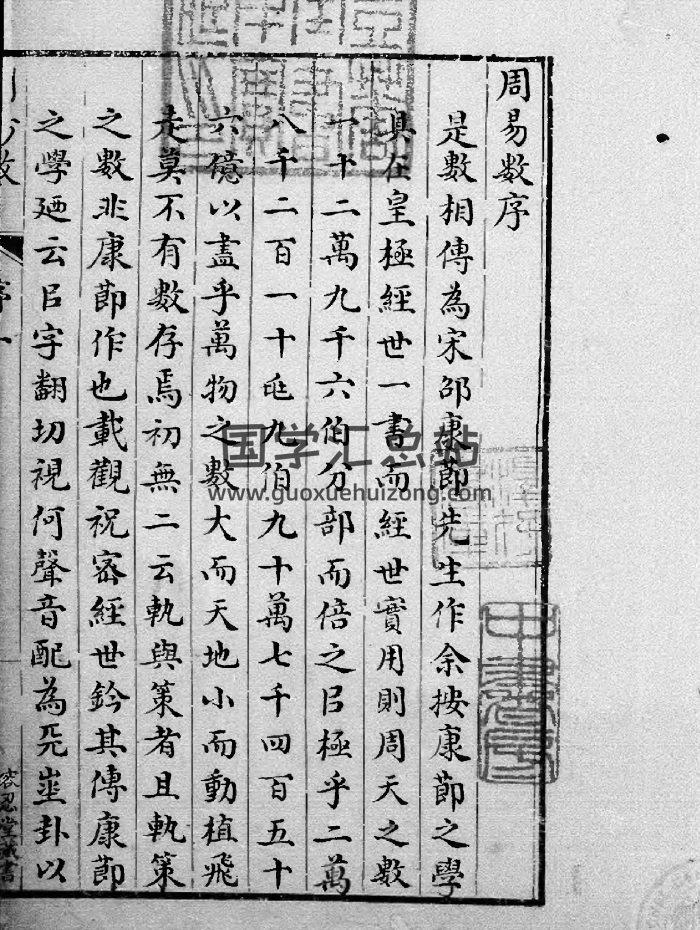 周易數序
是數相傳為宋邵康節先生作余按康節之學
具在皇極經世一書而經世實用則周天之數
一十二萬九千六伯分部而倍之㠯極乎二萬
八千二百一十兆九伯九十萬七千四百五十
六億以盡乎萬物之數大而天地小而動植飛
走莫不有數存焉初無二云軌與策者且軌策
之數非康節作也載觀祝窑經世鈐其傳康節
之學廼云㠯字翻切視何聲音配為旡㞷卦以
序一
容忍堂藏書
国学汇总站
www.guoxuehuizong.com